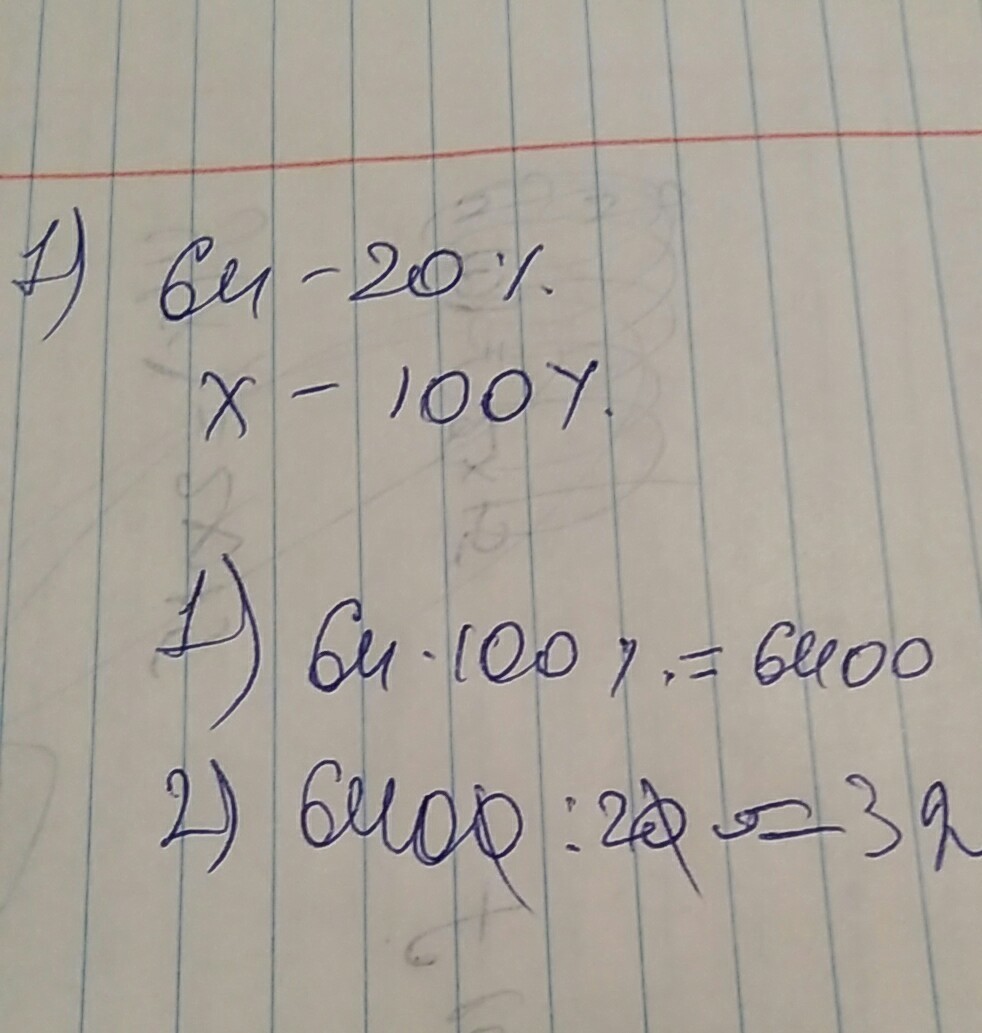 1) 64 - 20%
x - 100%.
1) 64 · 100% = 6400
2) 6400 : 20 = 32